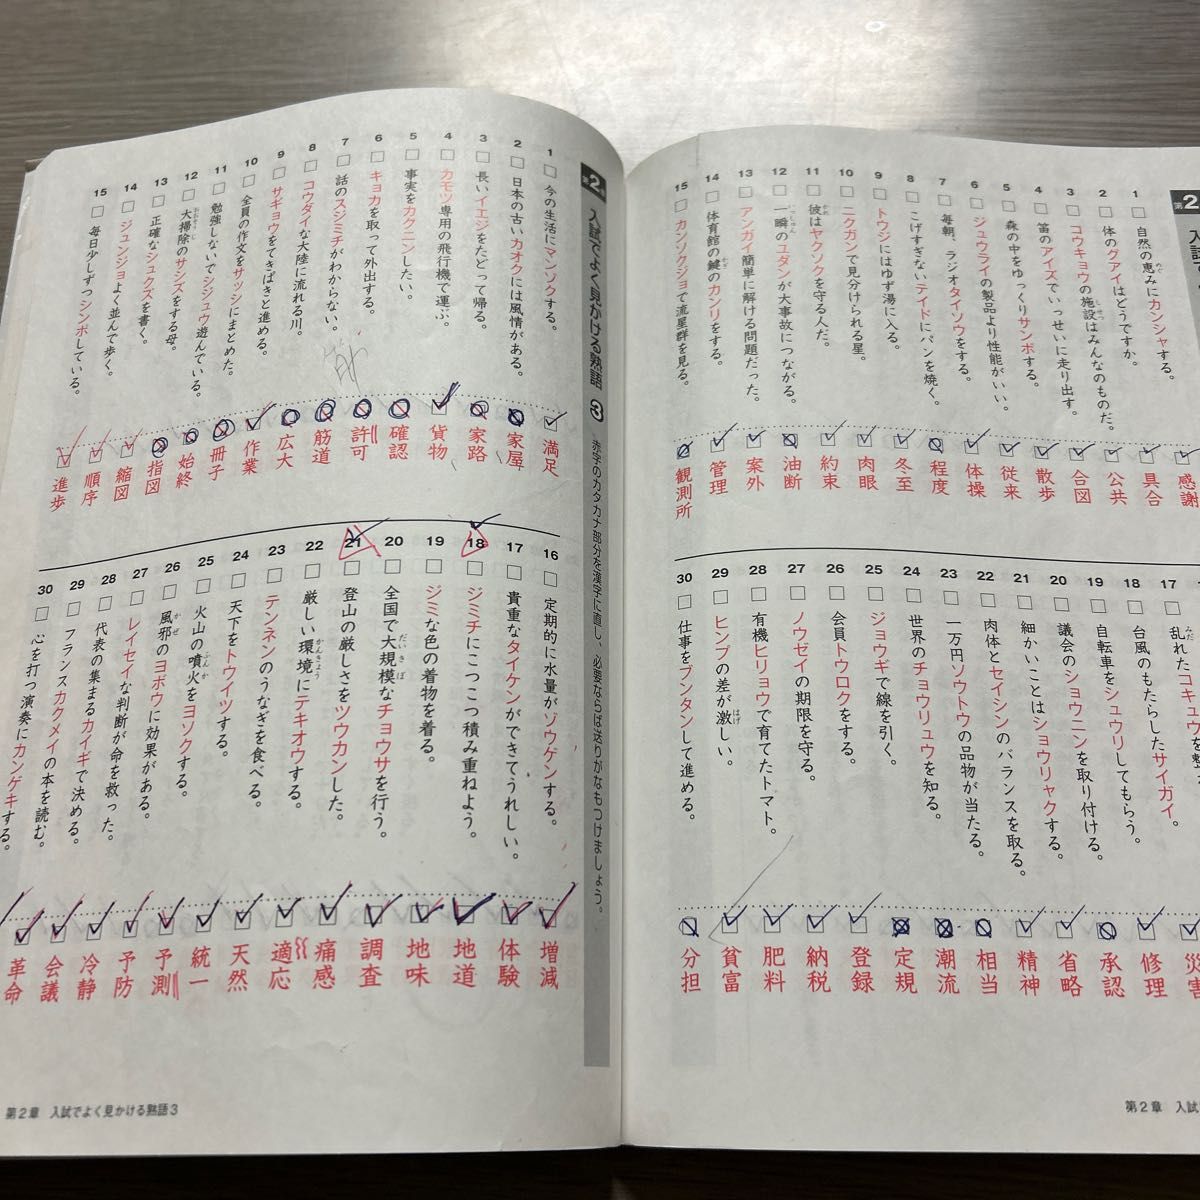 第2
1 自然の恵みにカンシャする。
2 体のグアイはどうですか。
3 コウキョウの施設はみんなのものだ。
4 笛のアイズでいっせいに走り出す。
5 森の中をゆっくりサンポする。
6 ジュウライの製品より性能がいい。
7 毎朝、ラジオタイソウをする。
8 こげすぎないテイドにパンを焼く。
9 トウジにはゆず湯に入る。
10 ニクガンで見分けられる星。
11 彼はヤクソクを守る人だ。
12 一瞬のユダンが大事故につながる。
13 アンガイ簡単に解ける問題だった。
14 体育館の鍵のカンリをする。
15 カンソクジョで流星群を見る。
感謝
具合
公共
合図
散歩
従来
体操
程度
冬至
肉眼
約束
油断
案外
管理
観測所
17 乱れたコキュウを整
18 台風のもたらしたサイガイ。
19 自転車をシュウリしてもらう。
20 議会のショウニンを取り付ける。
21 細かいことはショウリャクする。
22 肉体とセイシンのバランスを取る。
23 一万円ソウトウの品物が当たる。
24 世界のチョウリュウを知る。
25 ジョウギで線を引く。
26 会員トウロクをする。
27 ノウゼイの期限を守る。
28 有機ヒリョウで育てたトマト。
29 ヒンプの差が激しい。
30 仕事をブンタンして進める。
災害
修理
承認
省略
精神
相当
潮流
定規
登録
納税
肥料
貧富
分担
第2章 入試
第2章 入試でよく見かける熟語 3 赤字のカタカナ部分を漢字に直し、必要ならば送りがなもつけましょう。
1 今の生活にマンゾクする。
2 日本の古いカオクには風情がある。
3 長いイエジをたどって帰る。
4 カモツ専用の飛行機で運ぶ。
5 事実をカクニンしたい。
6 キョカを取って外出する。
7 話のスジミチがわからない。
8 コウダイな大陸に流れる川。
9 サギョウをてきぱきと進める。
10 全員の作文をサッシにまとめた。
11 勉強しないでシジュウ遊んでいる。
12 大掃除のサシズをする母。
13 正確なシュクズを書く。
14 ジュンジョよく並んで歩く。
15 毎日少しずつシンポしている。
満足
家屋
家路
貨物
確認
許可
筋道
広大
作業
冊子
始終
指図
縮図
順序
進歩
16 定期的に水量がゾウゲンする。
17 貴重なタイケンができてうれしい。
18 ジミチにこつこつ積み重ねよう。
19 ジミな色の着物を着る。
20 全国で大規模なチョウサを行う。
21 登山の厳しさをツウカンした。
22 厳しい環境にテキオウする。
23 テンネンのうなぎを食べる。
24 天下をトウイツする。
25 火山の噴火をヨソクする。
26 風邪のヨボウに効果がある。
27 レイセイな判断が命を救った。
28 代表の集まるカイギで決める。
29 フランスカクメイの本を読む。
30 心を打つ演奏にカンゲキする。
増減
体験
地道
地味
調査
痛感
適応
天然
統一
予測
予防
冷静
会議
革命
第2章 入試でよく見かける熟語3